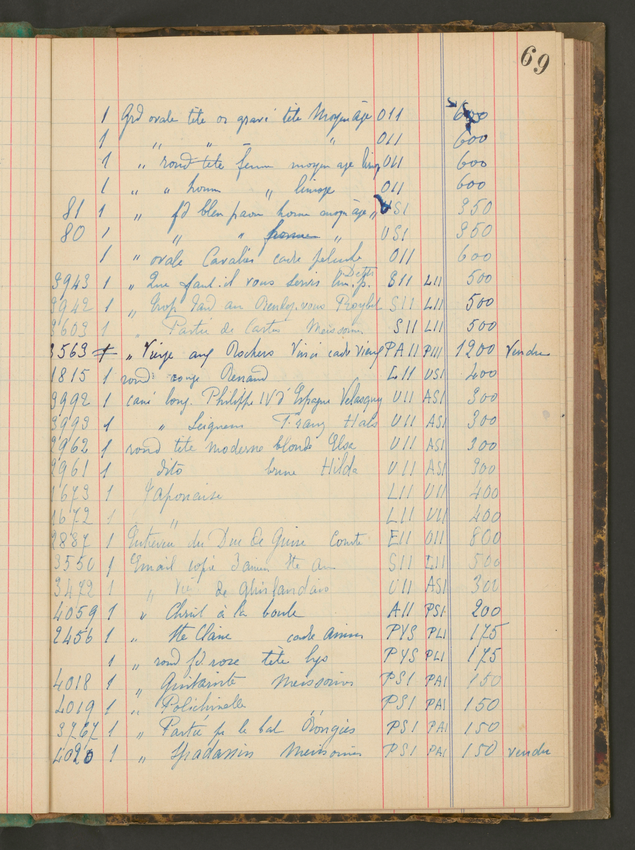 69
1 Grd ovale tête os gravé tête Moyen âge O11 600
1 " " " O11 600
1 " rond tête femme moyen age limog O11 600
1 " " homme " limoge O11 600
81 1 " fd bleu paon homme moyen age " US1 350
80 1 " " femme " US1 350
1 " ovale Cavalier cadre peluche O11 600
3943 1 " Que faut-il vous servir E11 L11 500
3942 1 " Trop tard au Rendez-vous S11 L11 500
3603 1 " Partie de Cartes Meissonier S11 L11 500
3563 1 " Vierge aux Rochers Vinci cadre vieux PA11 P111 1200 Vendu
1815 1 rond rouge Renard L11 US1 400
3992 1 carré long. Philippe IV d'Espagne Velasquez U11 AS1 300
3993 1 " Seigneur Franz Hals U11 AS1 300
3962 1 rond tête moderne blonde Elsa U11 AS1 300
3961 1 dito brune Hilda U11 AS1 300
1673 1 Japonaise L11 U11 400
1672 1 " L11 U11 400
2887 1 du Duc de Guise Comte E11 O11 800
3550 1 Email copie Ste S11 L11 500
3472 1 " de Ghirlandaio U11 AS1 300
4059 1 " Christ à la boule A11 PS1 200
2456 1 " Ste Claire cadre PYS PL1 175
1 " rond fd rose tête lys PYS PL1 175
4018 1 " Guitariste Meissonier PS1 PA1 150
4019 1 " Polichinelle " PS1 PA1 150
3767 1 " Partie pr le bal PS1 PA1 150
4020 1 " Spadassin Meissonier PS1 PA1 150 vendu